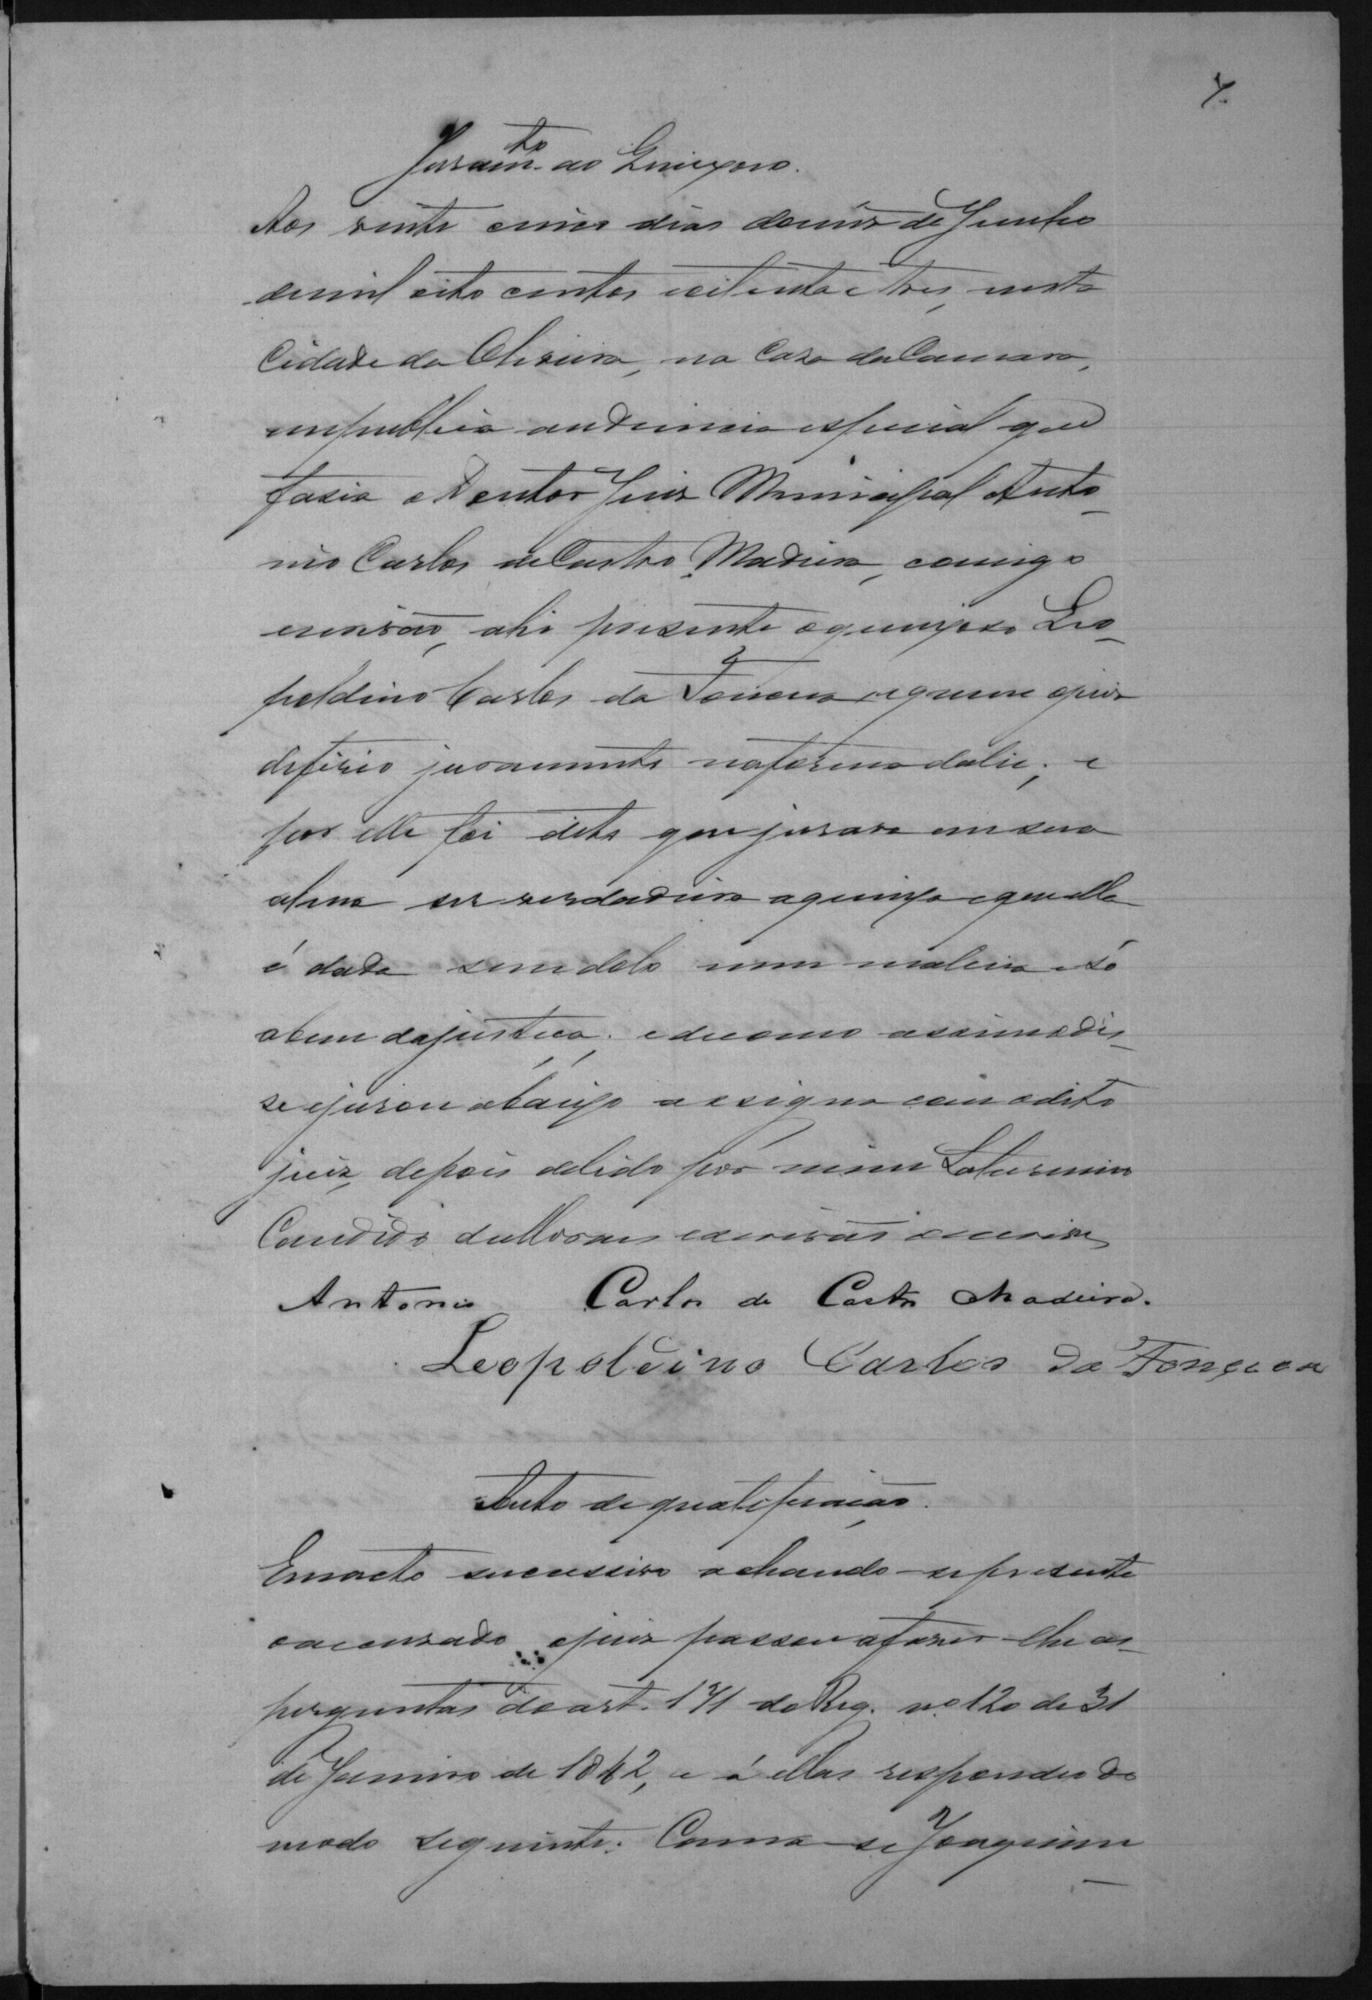 7.
Juramto. ao Queixoso.
Aos vinte cinco dias do mez de Junho
de mil oito centos e oitenta e tres, nesta
Cidade da Oliveira, na Casa da Camara,
em publica audiencia especial que
fasia o Doutor Juiz Municipal Anto-
nio Carlos de Castro Madeira, comigo
escrivão, ahi presente o queixoso Leo-
poldino Carlos da Fonceca a quem o juiz
deferio juramento na forma da lei; e
por elle foi dito que jurava em sua
alma ser verdadeira a queixa e que ella
é dada sem dolo nem malicia e só
a bem da justiça; e de como assim o dis-
se e jurou abaixo assigna com o dito
juiz, depois de lido por mim Saturnino
Candido de Moraes escrivão o escrevi
Antonio Carlos de Castro Madeira.
Leopoldino Carlos da Fonçeca
Auto de qualificação.
Em acto sucessivo achando-se presente
o accusado o juiz passou a fazer-lhe as
perguntas do art. 171 do Reg. nº 120 de 31
de Janeiro de 1842, e á ellas respondeo do
modo seguinte: Chama-se Joaquim